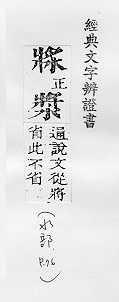 經典文字辨證書
正
漿
通說文從將
省此不省
(水部 P.76)